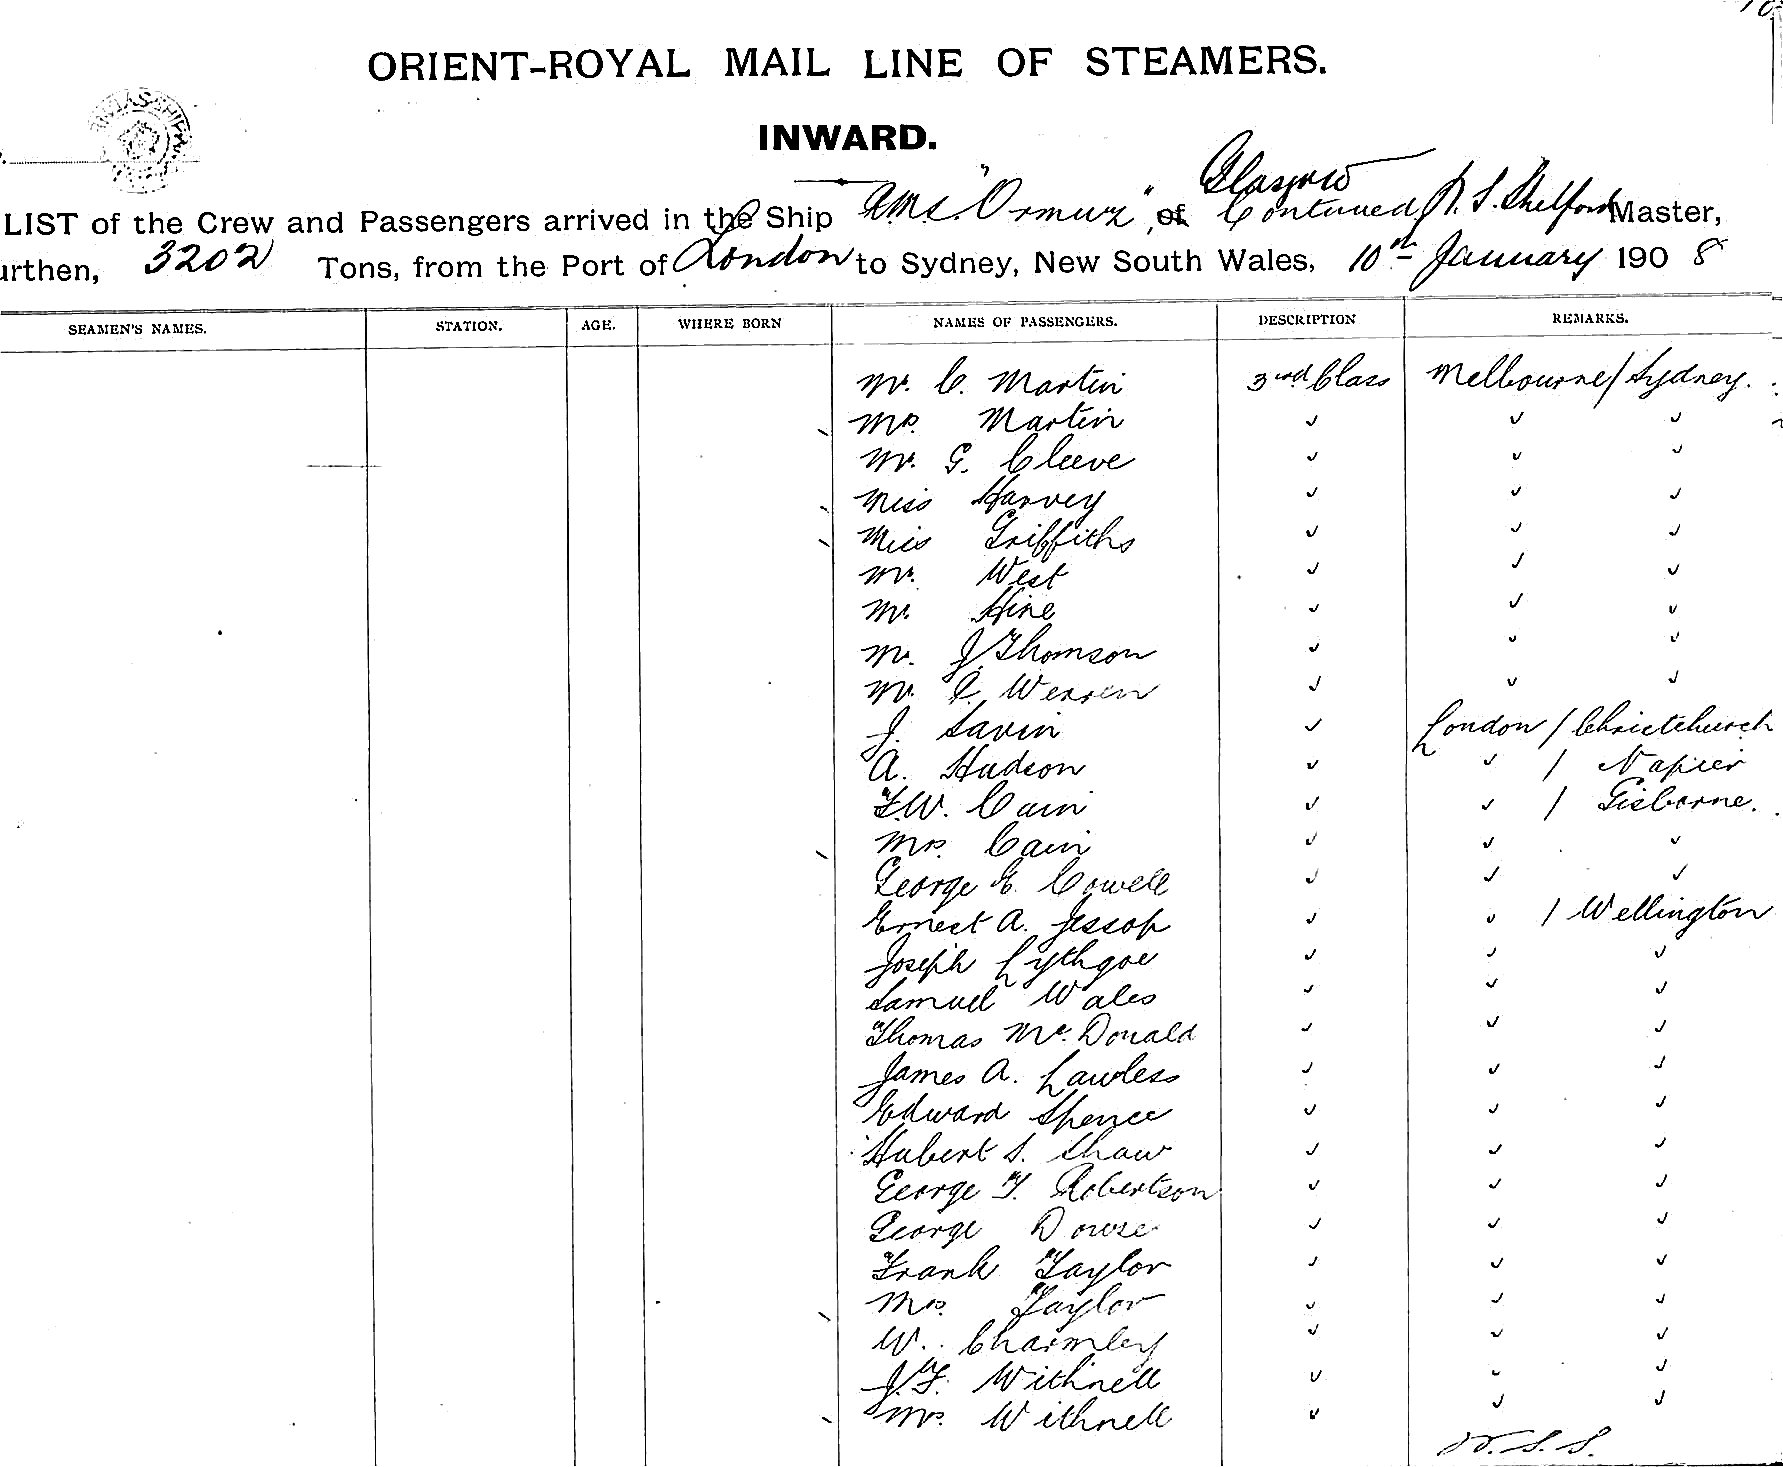 ORIENT-ROYAL MAIL LINE OF STEAMERS.
INWARD.
Glasgow
LIST of the Crew and Passengers arrived in the Ship RMS "Ormuz", of Continued, S. Shelford Master,
urthen, 3202 Tons, from the Port of London to Sydney, New South Wales, 10th January 1908
SEAMEN'S NAMES. STATION. AGE. WHERE BORN NAMES OF PASSENGERS. DESCRIPTION REMARKS.
Mr. C. Martin 3rd Class Melbourne / Sydney.
Mrs. Martin " " "
Mr. G. Cleeve " " "
Miss Harvey " " "
Miss Griffiths " " "
Mr. West " " "
Mr. Hine " " "
Mr. J. Thomson " " "
Mr. Werren " " "
J. Savin " London / Christchurch
A. Hudson " " / Napier
F.W. Cain " " / Gisborne.
Mrs. Cain " " "
George E. Cowell " " "
Ernest A. Jessop " " / Wellington
Joseph Lythgoe " " "
Samuel Wales " " "
Thomas McDonald " " "
James A. Lawless " " "
Edward Spence " " "
Hubert S. Shaw " " "
George T. Robertson " " "
George Dowse " " "
Frank Taylor " " "
Mrs. Taylor " " "
W. Charmley " " "
J.F. Withnell " " "
Mrs. Withnell " " "